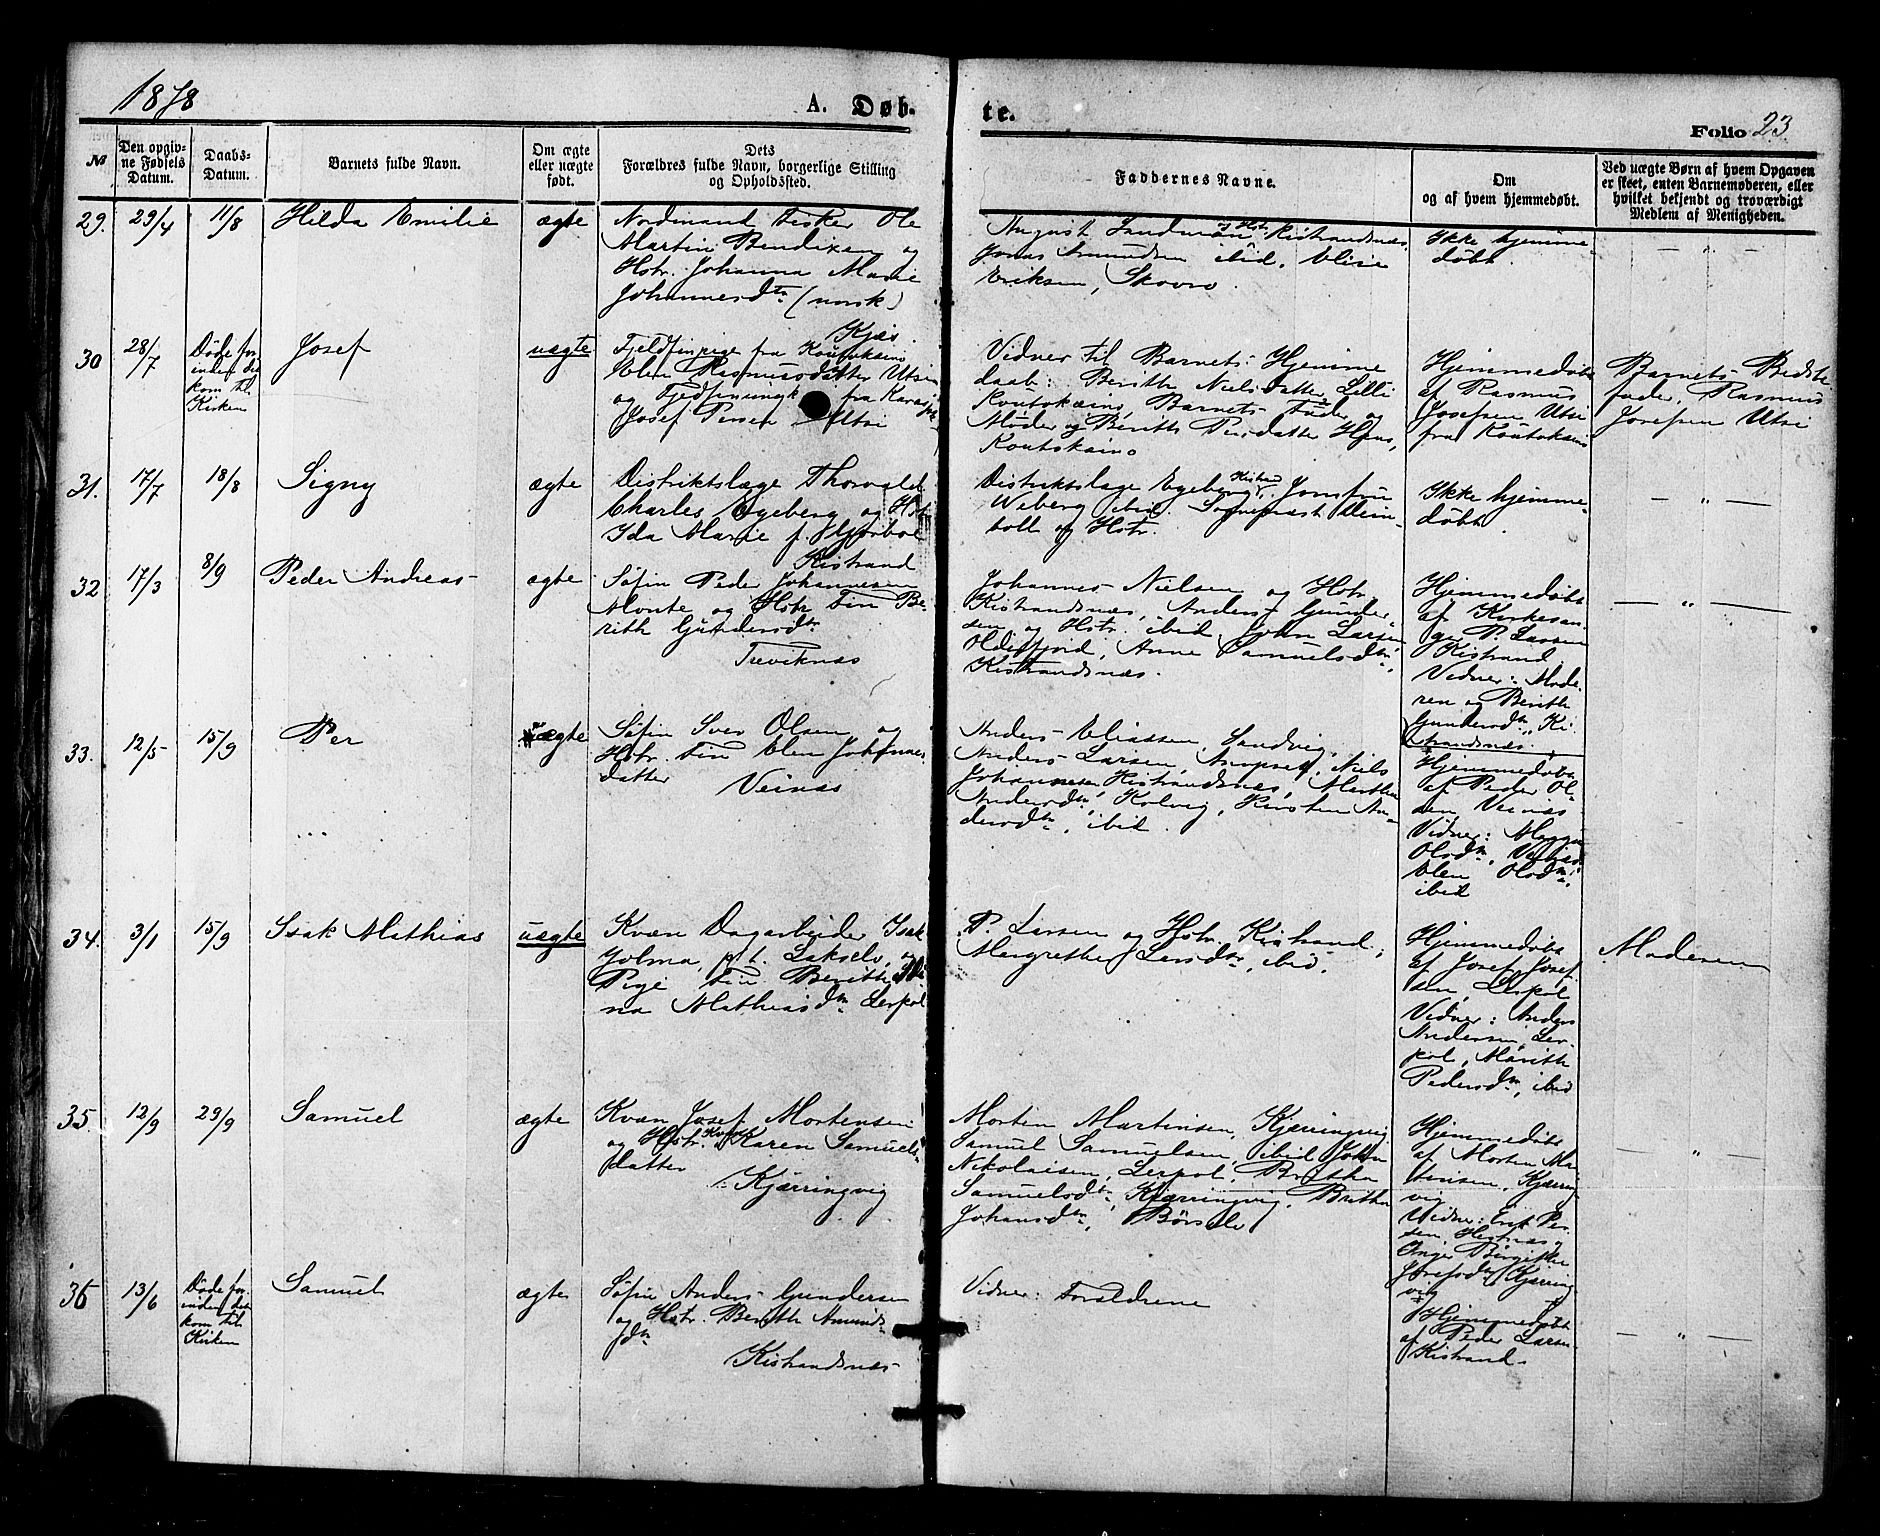 1878
A. Døb-
te.
Folio 23
№
Den opgiv-
ne Fødsels
Datum.
Daabs-
Datum.
Barnets fulde Navn.
Om ægte
eller uægte
født.
Dets
Forældres fulde Navn, borgerlige Stilling
og Opholdssted.
Faddernes Navne.
Om
og af hvem hjemmedøbt.
Ved uægte Børn af hvem Opgaven
er skeet, enten Barnemoderen, eller
hvilket bekjendt og troværdigt
Medlem af Menigheden.
29. 29/4 11/8 Hilda Emilie ægte
Nordmand Fisker Ole
Martin Bendixen og
Hstr. Johanna Marie
Johannesdtr (norsk)
Kjæs.
August Sandman og Hstr. Kistrandsnæs,
Jonas Amundsen ibid, Elise
Eriksen, Skovro.
Ikke hjemme
døbt.
— „ —
30 28/7
Døde for
inden det
kom til
Kirken
Josef uægte
Fjeldfinpige fra Koutokeino
Elen Rasmusdatter Utsi
og Fjeldfinungk fra Karasjok
Josef Persen Utsi
Vidner til Barnets Hjemme
daab: Berith Nielsdatter Lilli
Koutokæino, Barnets Fader og
Moder og Berith Persdatter
Koutokæino
Hjemmedøbt
af Rasmus
Josefsen Utsi
fra Koutokæino
Barnets Bedste
fader, Rasmus
Josefsen Utsi
31. 17/7 18/8 Signy ægte
Distriktslæge Thorvald
Charles Egeberg og Hstr
Ida Marie f.
Kistrand
Distriktslæge Egeberg, Kistrand, Jomfru
Weberg ibid. Sogneprest
og Hstr.
Ikke hjemme-
døbt.
— „ —
32 17/3 8/9 Peder Andreas ægte
Søfin Peder Johannesen
Monte og Hstr. Fin Be-
rith Gundersdtr
Treviknæs
Johannes Nielsen og Hstr.
Kistrandsnæs, Anders Gunder-
sen og Hstr. ibid, John Larsen
Olderfjord, Anne Samuelsdtr,
Kistrandsnæs.
Hjemmedøbt
af Kirkesan-
ger P. Larsen
Kistrand
Vidner: Mode-
ren og Berith
Gundersdtr, Ki-
strandsnæs.
— „ —
33. 12/5 15/9 Per ægte
Søfin Sver Olsen og
Hstr. Fin Elen Johannes
datter
Veinæs
Anders Eliassen, Sandvig,
Anders Larsen, Niels
Johannesen Kistrandsnæs, Marthe
Andersdtr, Kolvig, Kirsten An-
dersdtr, ibid.
Hjemmedøbt
af Peder Ol-
sen Veinæs
Vidner:
Olsdtr, Veinæs
Elen Olsdtr,
ibid
34. 3/1 15/9 Isak Mathias uægte
Kvæn Dagarbeider Isak
Jolma, p.t. Lakselv, og
Pige Fin Berith
na Mathiasdtr Lerpol
P. Larsen og Hstr. Kistrand,
Margrethe Larsdtr, ibid.
Hjemmedøbt
af Josef Josef
sen, Lerpol
Vidner: Anders
Andersen, Ler-
pol, Marith
Pedersdtr, ibid
Moderen
35. 12/9 29/9 Samuel ægte
Kvæn Josef Mortensen
og Hstr. Kvæn Karen Samuels-
datter
Kjærringvig
Morten Martinsen, Kjærringvig
Samuel Samuelsen, ibid John
Nikolaisen, Lerpol, Britha
Samuelsdtr, Kjærringvig, Britha
Johansdtr, Børselv
Hjemmedøbt
af Morten Mar-
tinsen, Kjærring
vig
Vidner: Erik Per-
sen,
Inger Birgithe
Josefsdtr Kjærring
vig
— „ —
36 13/6
Døde for
inden det
kom til
Kirken
Samuel ægte
Søfin Anders Gundersen
og Hstr. Berith Amunds-
dtr
Kistrandsnæs
Vidner: Forældrene
Hjemmedøbt
af Peder Larsen
Kistrand.
— „ —